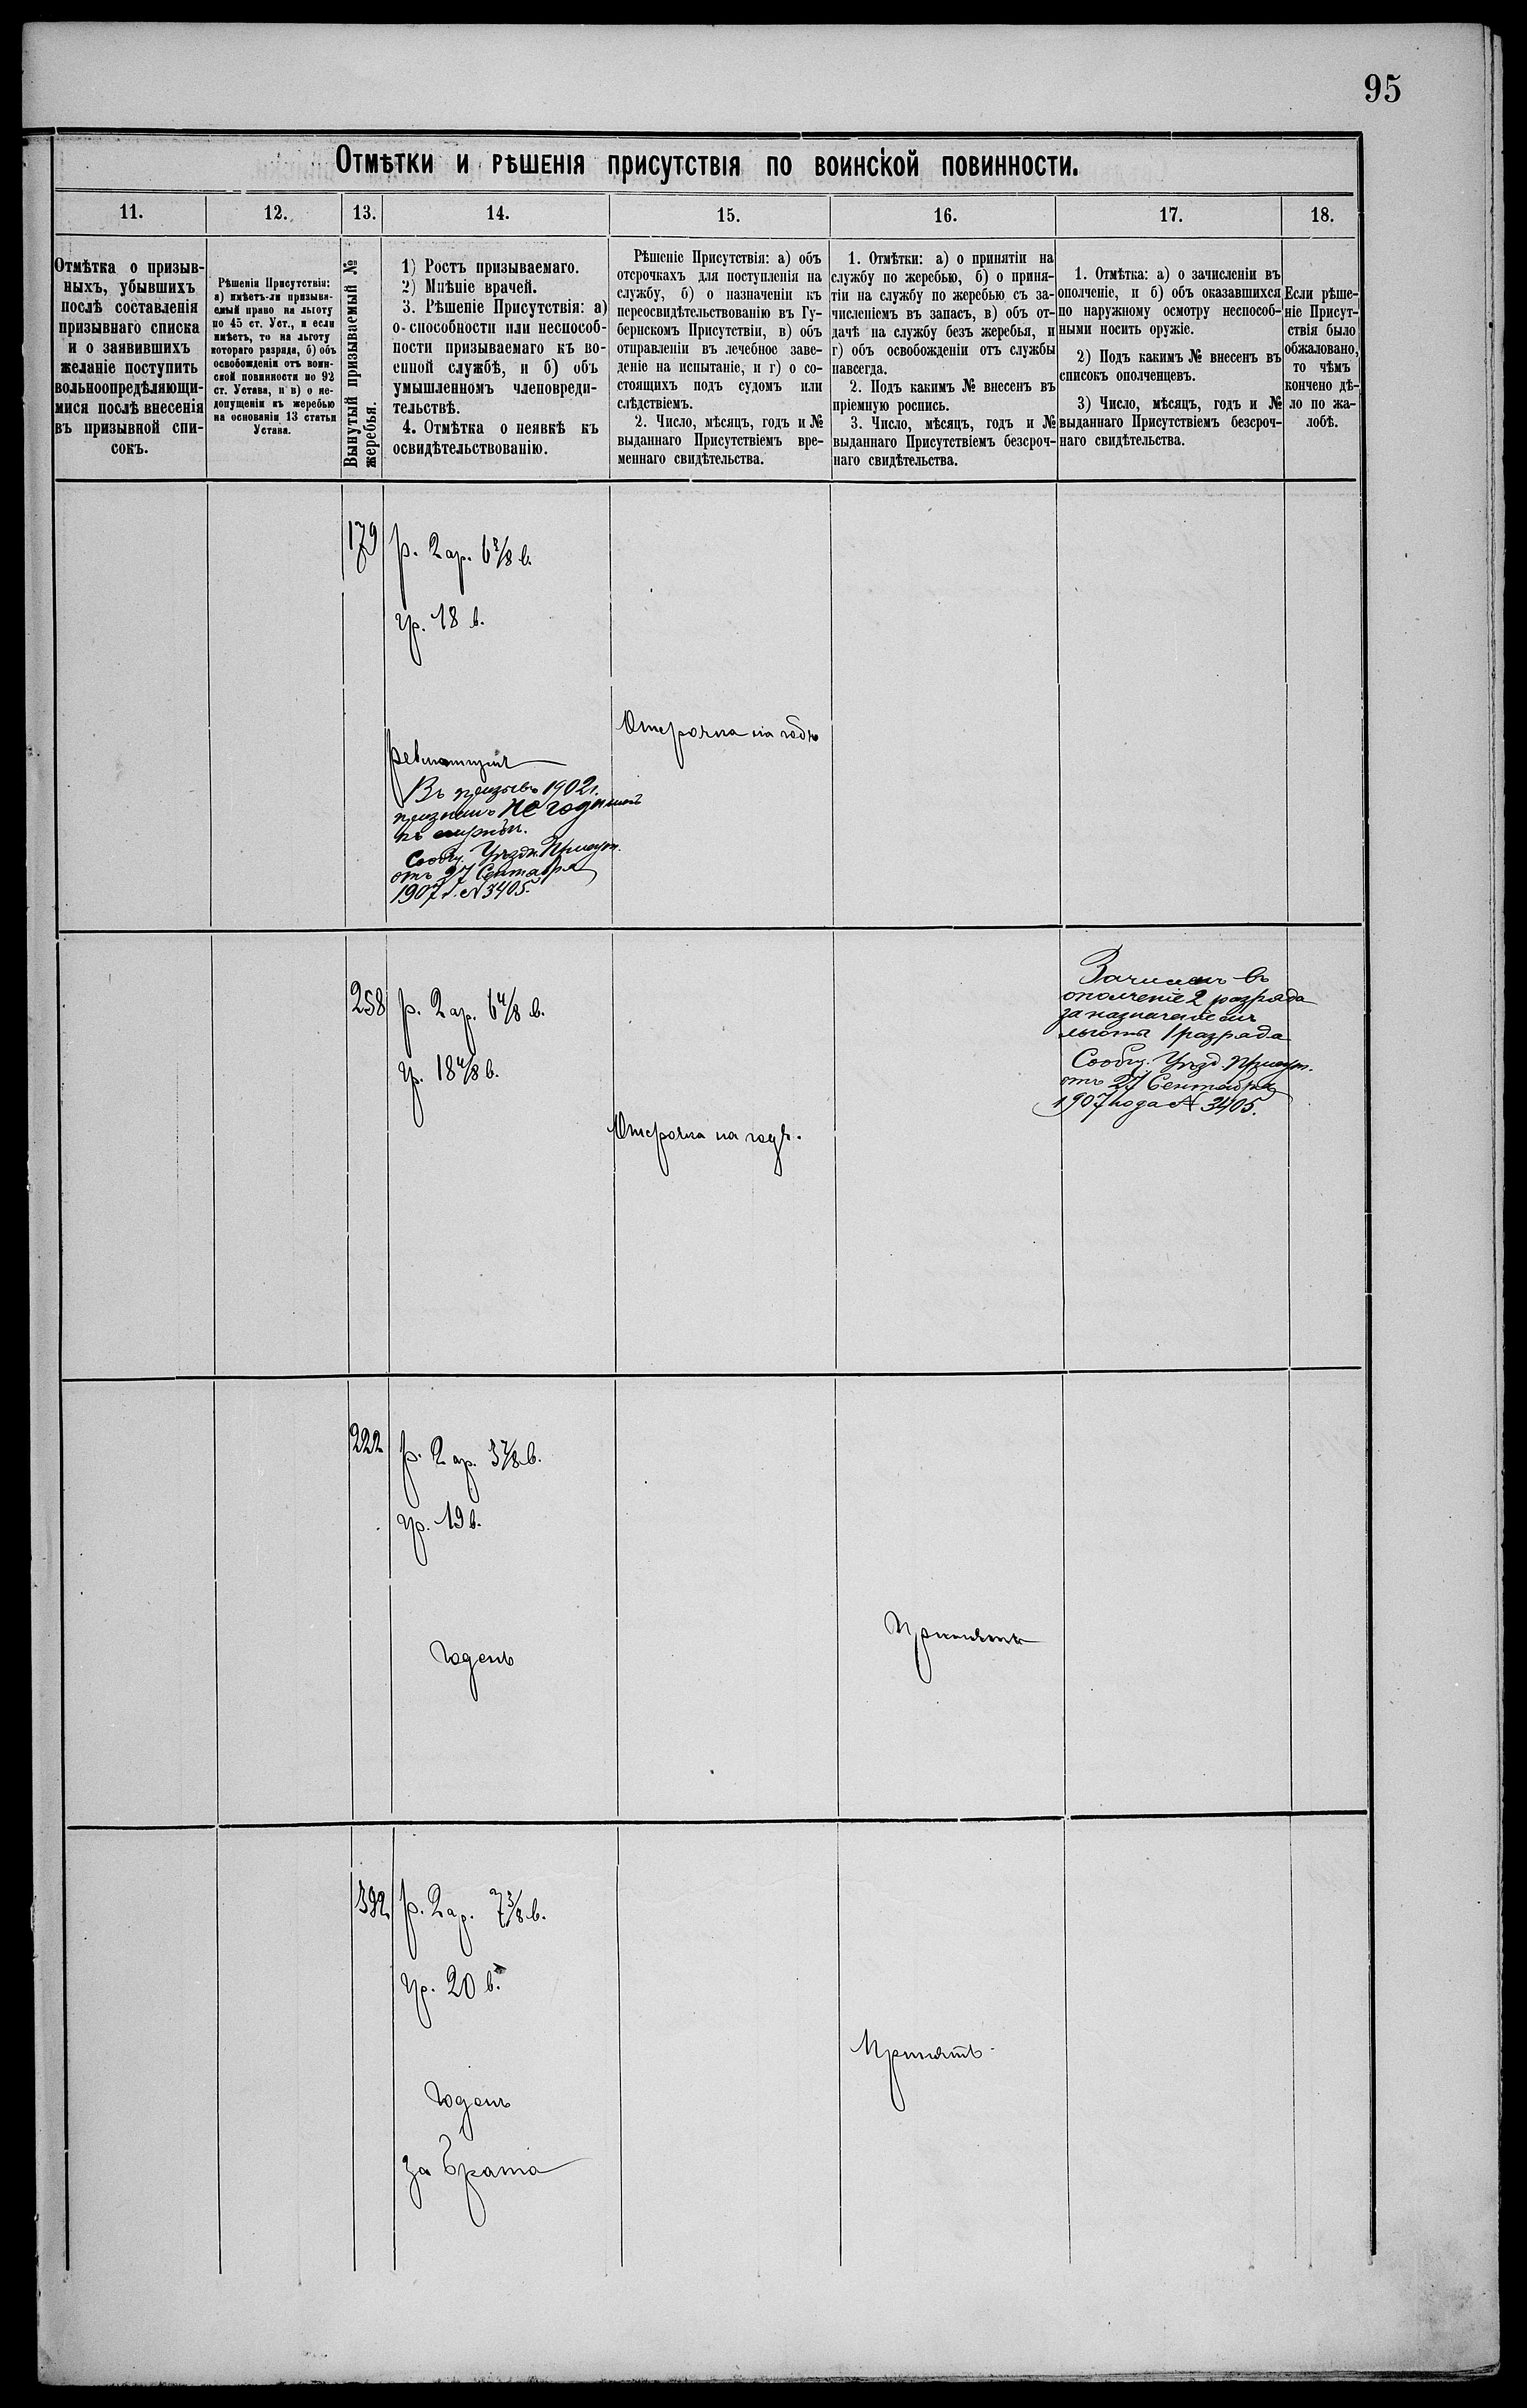 95
Отмѣтки и рѣшенія присутствія по воинской повинности.
11.
12.
13.
14.
15.
16.
17.
18.
Отмѣтка о призыв-
ныхъ, убывшихъ
послѣ составленія
призывнаго списка
и о заявившихъ
желаніе поступить
вольноопредѣляющи-
мися послѣ внесенія
въ призывной спи-
сокъ.
Рѣшенія Присутствія:
а) имѣетъ-ли призыва-
емый право на льготу
по 45 ст. Уст., и если
имѣетъ, то на льготу
котораго разряда, б) объ
освобожденіи отъ воин-
ской повинности по 92
ст. Устава, и в) о не-
допущеніи къ жеребью
на основаніи 13 статьи
Устава.
Вынутый призываемый №
жеребья.
1) Ростъ призываемаго.
2) Мнѣніе врачей.
3. Рѣшеніе Присутствія: а)
о способности или неспособ-
ности призываемаго къ во-
енной службѣ, и б) объ
умышленномъ членовреди-
тельствѣ.
4. Отмѣтка о неявкѣ къ
освидѣтельствованію.
Рѣшеніе Присутствія: а) объ
отсрочкахъ для поступленія на
службу, б) о назначеніи къ
переосвидѣтельствованію въ Гу-
бернскомъ Присутствіи, в) объ
отправленіи въ лечебное заве-
деніе на испытаніе, и г) о со-
стоящихъ подъ судомъ или
слѣдствіемъ.
2. Число, мѣсяцъ, годъ и №
выданнаго Присутствіемъ вре-
меннаго свидѣтельства.
1. Отмѣтки: а) о принятіи на
службу по жеребью, б) о приня-
тіи на службу по жеребью съ за-
численіемъ въ запасъ, в) объ от-
дачѣ на службу безъ жеребья, и
г) объ освобожденіи отъ службы
навсегда.
2. Подъ какимъ № внесенъ въ
пріемную роспись.
3. Число, мѣсяцъ, годъ и №
выданнаго Присутствіемъ безсроч-
наго свидѣтельства.
1. Отмѣтка: а) о зачисленіи въ
ополченіе, и б) объ оказавшихся
по наружному осмотру неспособ-
ными носить оружіе.
2) Подъ какимъ № внесенъ въ
списокъ ополченцевъ.
3) Число, мѣсяцъ, годъ и №
выданнаго Присутствіемъ безсроч-
наго свидѣтельства.
Если рѣше-
ніе Присут-
ствія было
обжаловано,
то чѣмъ
кончено дѣ-
ло по жа-
лобѣ.
179
р. 2 ар. 6 3/8 в.
гр. 18 в.
ревматизмъ
Въ призывъ 1902 г.
признанъ не годнымъ
къ службѣ.
Сообщ. Уѣздн. Присут.
отъ 27 Сентября
1907 г. № 3405.
Отсрочка на годъ
258
р. 2 ар. 6 4/8 в.
гр. 18 4/8 в.
Отсрочка на годъ.
Зачисленъ въ
ополченіе 2 разряда
за назначеніемъ
льготы 1 разряда
Сообщ. Уѣзд. Присут.
отъ 27 Сентября
1907 года № 3405.
222
р. 2 ар. 3 7/8 в.
гр. 19 в.
Годенъ
Принятъ
392
р. 2 ар. 7 3/8 в.
гр. 20 в.
Годенъ
за брата
Принятъ